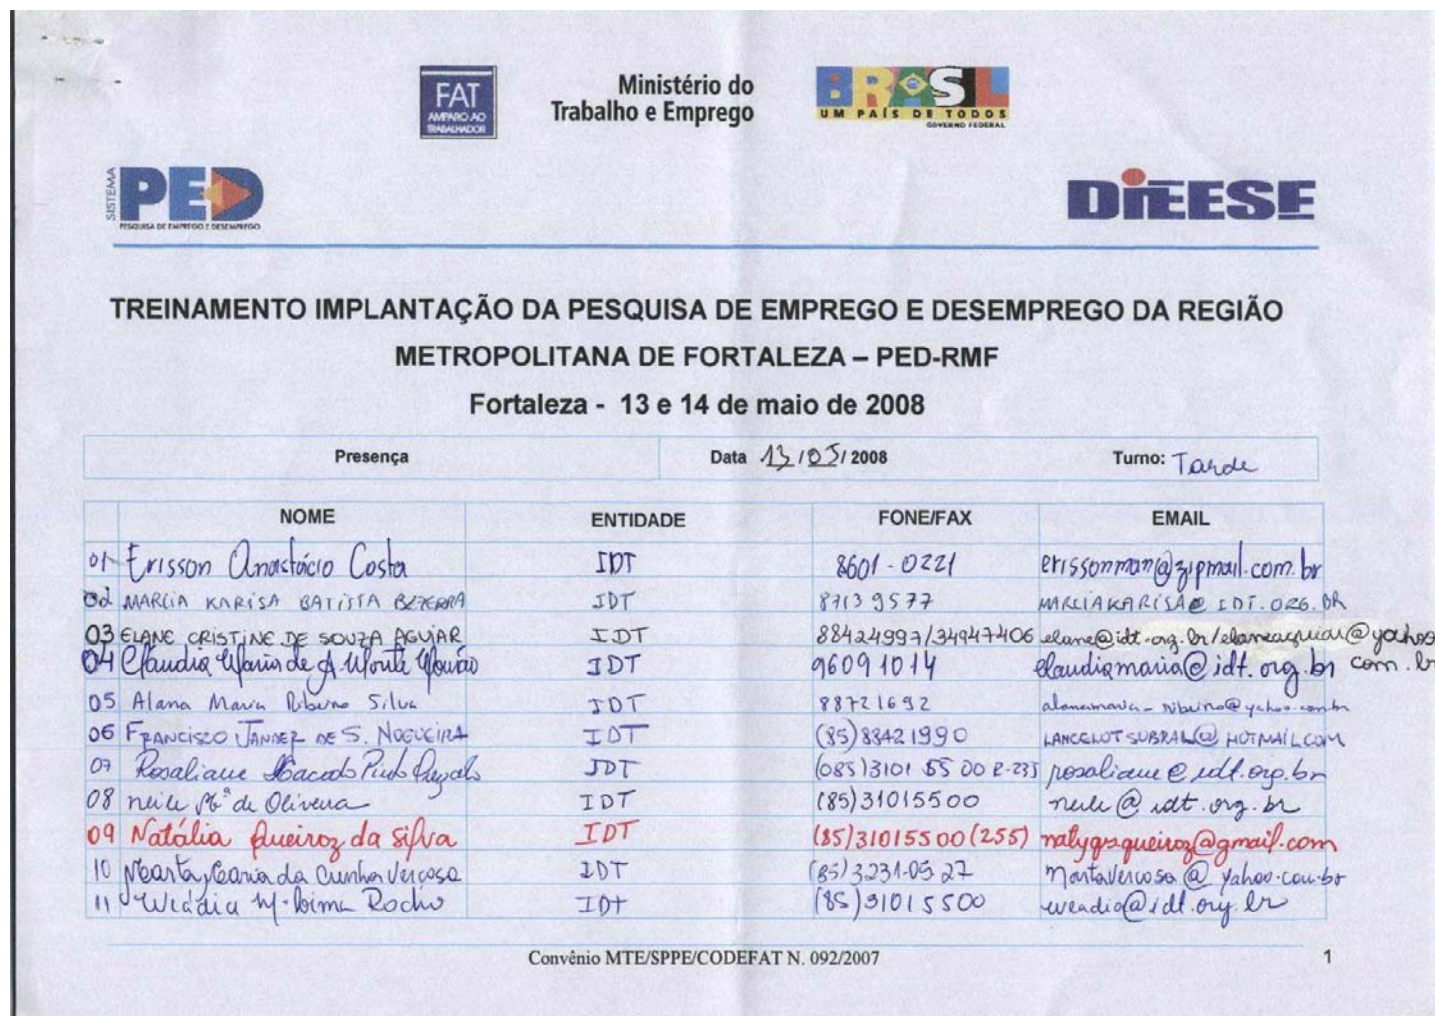 FAT
AMPARO AO
TRABALHADOR
Ministério do
Trabalho e Emprego
BRASIL
UM PAÍS DE TODOS
GOVERNO FEDERAL
SISTEMA
PED
PESQUISA DE EMPREGO E DESEMPREGO
DIEESE
TREINAMENTO IMPLANTAÇÃO DA PESQUISA DE EMPREGO E DESEMPREGO DA REGIÃO
METROPOLITANA DE FORTALEZA – PED-RMF
Fortaleza - 13 e 14 de maio de 2008
Presença Data 13/05/2008 Turno: Tarde
NOME ENTIDADE FONE/FAX EMAIL
01 Erisson Anastácio Costa IDT 8601-0221 erissonman@zipmail.com.br
02 MARCIA KARISA BATISTA BEZERRA IDT 87139577 MARCIAKARISA@IDT.ORG.BR
03 ELANE CRISTINE DE SOUZA AGUIAR IDT 88424997/34947406 elane@idt.org.br/elaneaguiar@yahoo
com.br
04 Claudia Maria de A Monte Mourão IDT 96091014 claudiamaria@idt.org.br
05 Alana Maria Ribeiro Silva IDT 88721692 alanamaria_ribeiro@yahoo.com.br
06 FRANCISCO JANDER DE S. NOGUEIRA IDT (85)88421990 LANCELOTSUBRAL@HOTMAIL.COM
07 Rosaliane IDT (085)3101 55 00 R-235 rosaliane@idt.org.br
08 neile de Oliveira IDT (85)31015500 neile@idt.org.br
09 Natália Queiroz da silva IDT (85)31015500 (255) natyqsqueiroz@gmail.com
10 Marta Maria da Cunha Verçosa IDT (85)3231-0527 martavercosa@yahoo.com.br
11 M. Lima Rocha IDT (85)31015500 @idt.org.br
Convênio MTE/SPPE/CODEFAT N. 092/2007 1